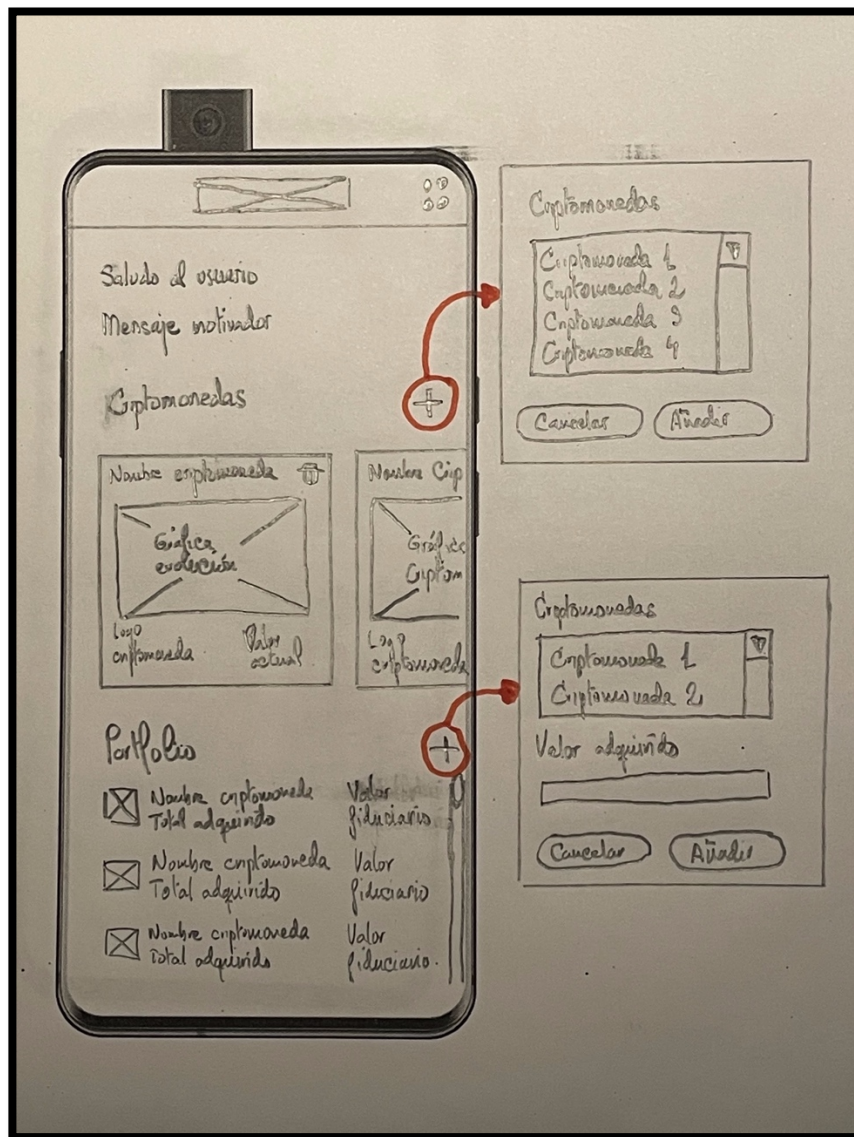 Saludo al usuario
Mensaje motivador
Criptomonedas
Nombre criptomoneda
Gráfica
evolución
Logo
criptomoneda
Valor
actual
Nombre Crip
Gráfica
Criptom
Logo
criptomoneda
Portfolio
Nombre criptomoneda
Total adquirido
Valor
fiduciario
Nombre criptomoneda
Total adquirido
Valor
fiduciario
Nombre criptomoneda
Total adquirido
Valor
fiduciario.
Criptomonedas
Criptomoneda 1
Criptomoneda 2
Criptomoneda 3
Criptomoneda 4
Cancelar
Añadir
Criptomonedas
Criptomoneda 1
Criptomoneda 2
Valor adquirido
Cancelar
Añadir